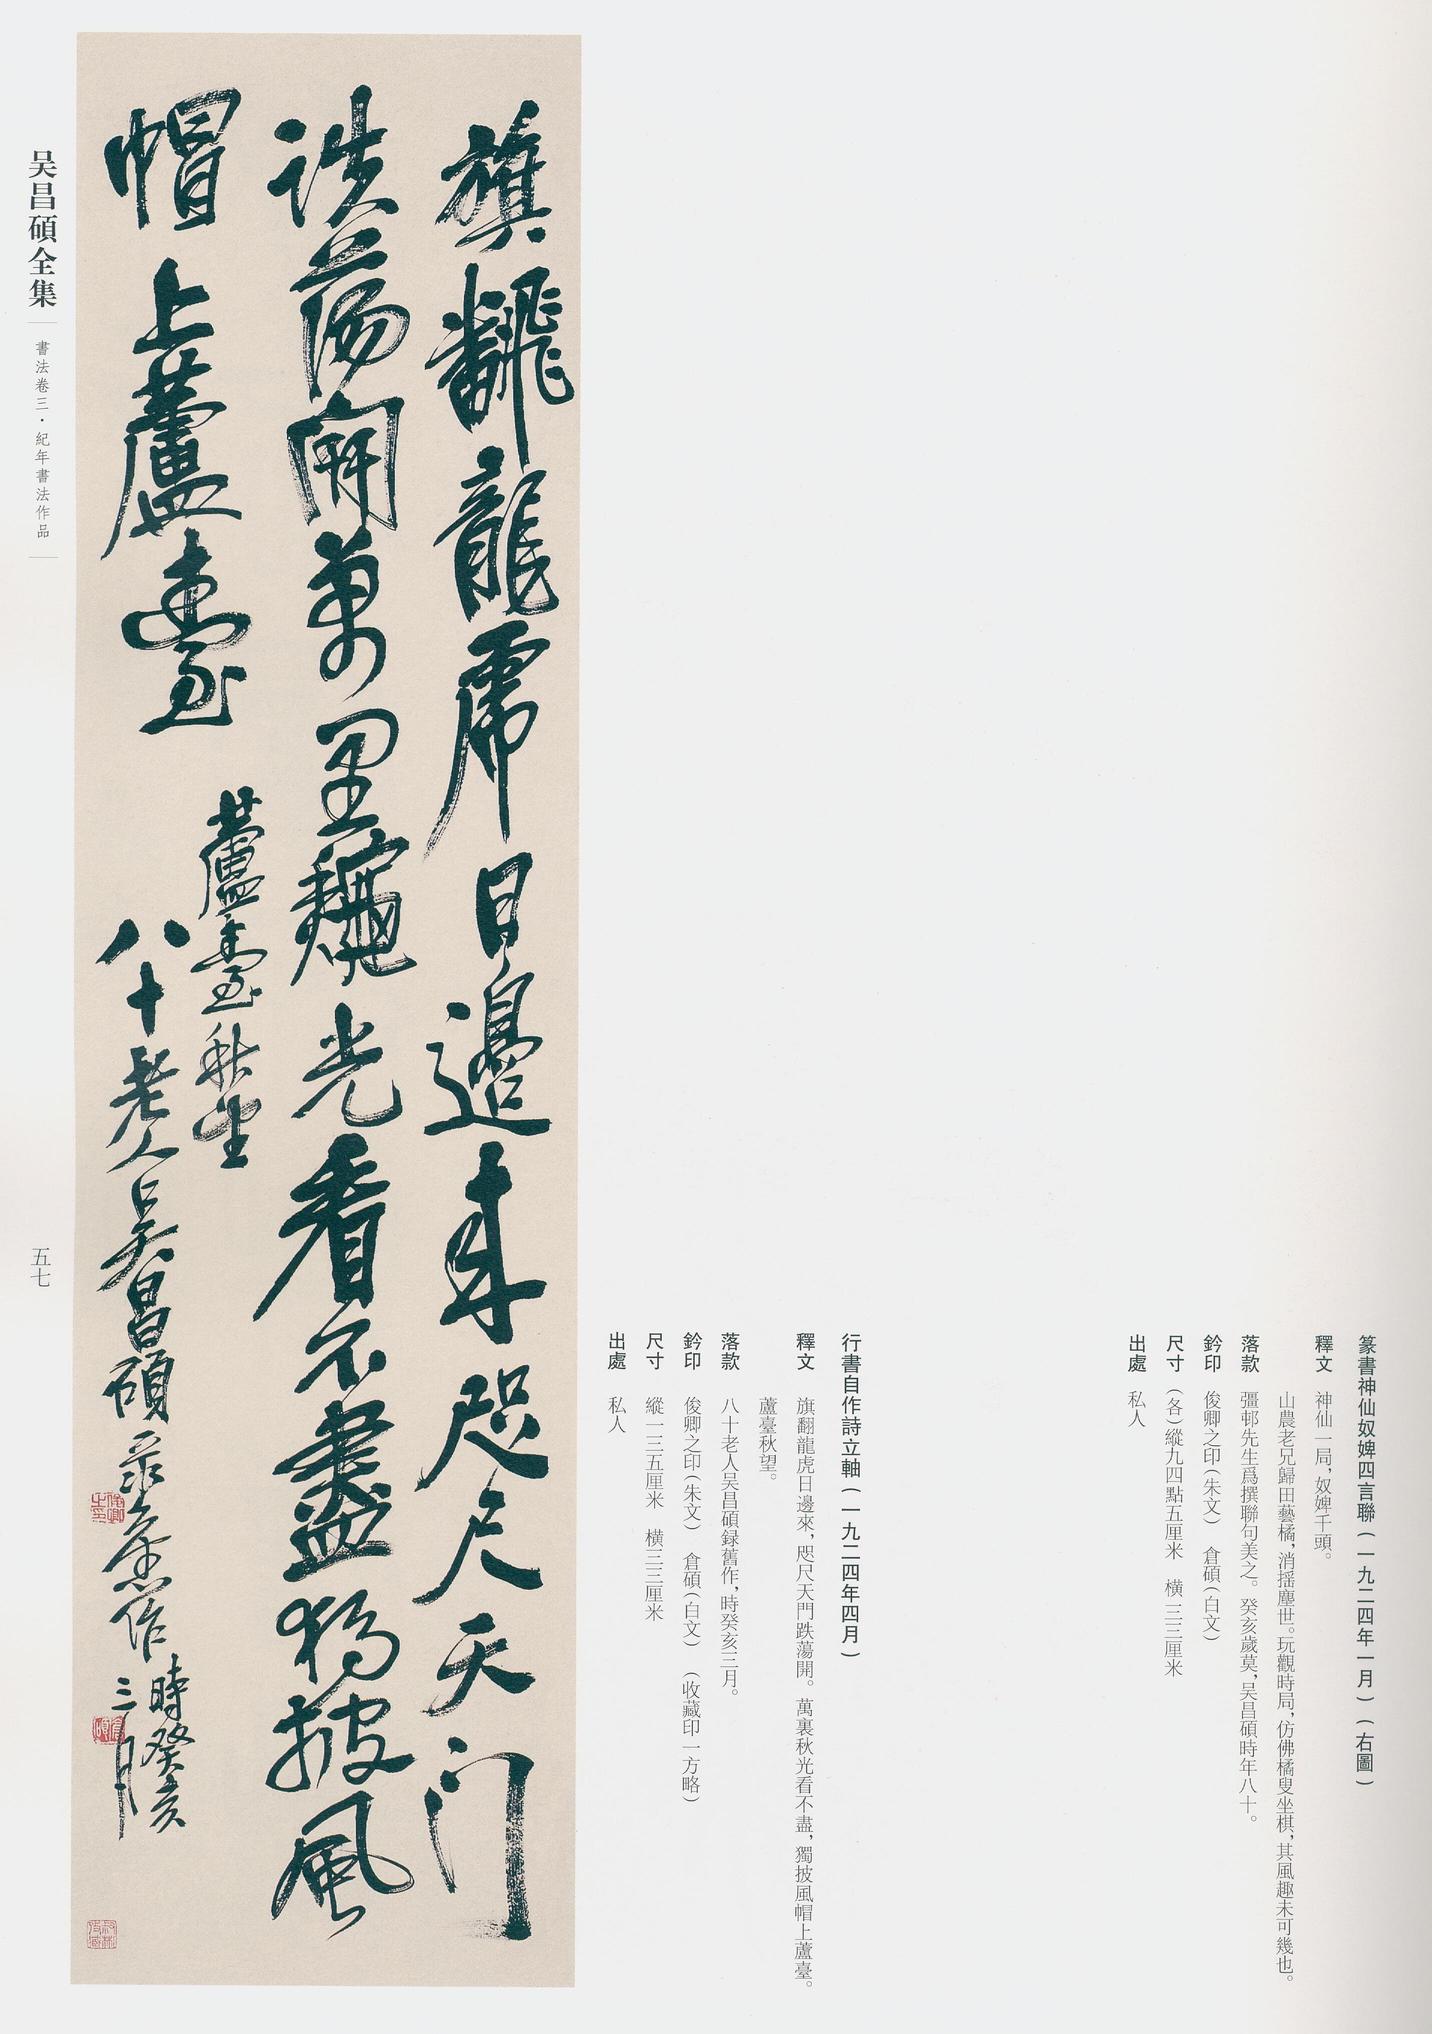 篆書神仙奴婢四言聯(一九二四年一月)(右圖)
釋文 神仙一局,奴婢千頭。
山農老兄歸田藝橘,消摇塵世。玩觀時局,仿佛橘叟坐棋,其風趣未可幾也。
落款 彊邨先生爲撰聯句美之。癸亥歲莫,吴昌碩時年八十。
鈐印 俊卿之印(朱文) 倉碩(白文)
尺寸 (各)縱九四點五厘米 橫二三厘米
出處 私人
行書自作詩立軸(一九二四年四月)
釋文 旗翻龍虎日邊來,咫尺天門跌蕩開。萬裏秋光看不盡,獨披風帽上蘆臺。
蘆臺秋望。
落款 八十老人吴昌碩録舊作,時癸亥三月。
鈐印 俊卿之印(朱文) 倉碩(白文) (收藏印一方略)
尺寸 縱一三五厘米 橫三三厘米
出處 私人
旗翻龍虎日邊來咫尺天门
詄蕩開萬里穐光看不盡獨披風
帽上蘆臺
蘆臺秋望
八十老人吴昌碩录舊作時癸亥
三月
俊卿之印
倉碩
吴昌碩全集
書法卷三·紀年書法作品
五七